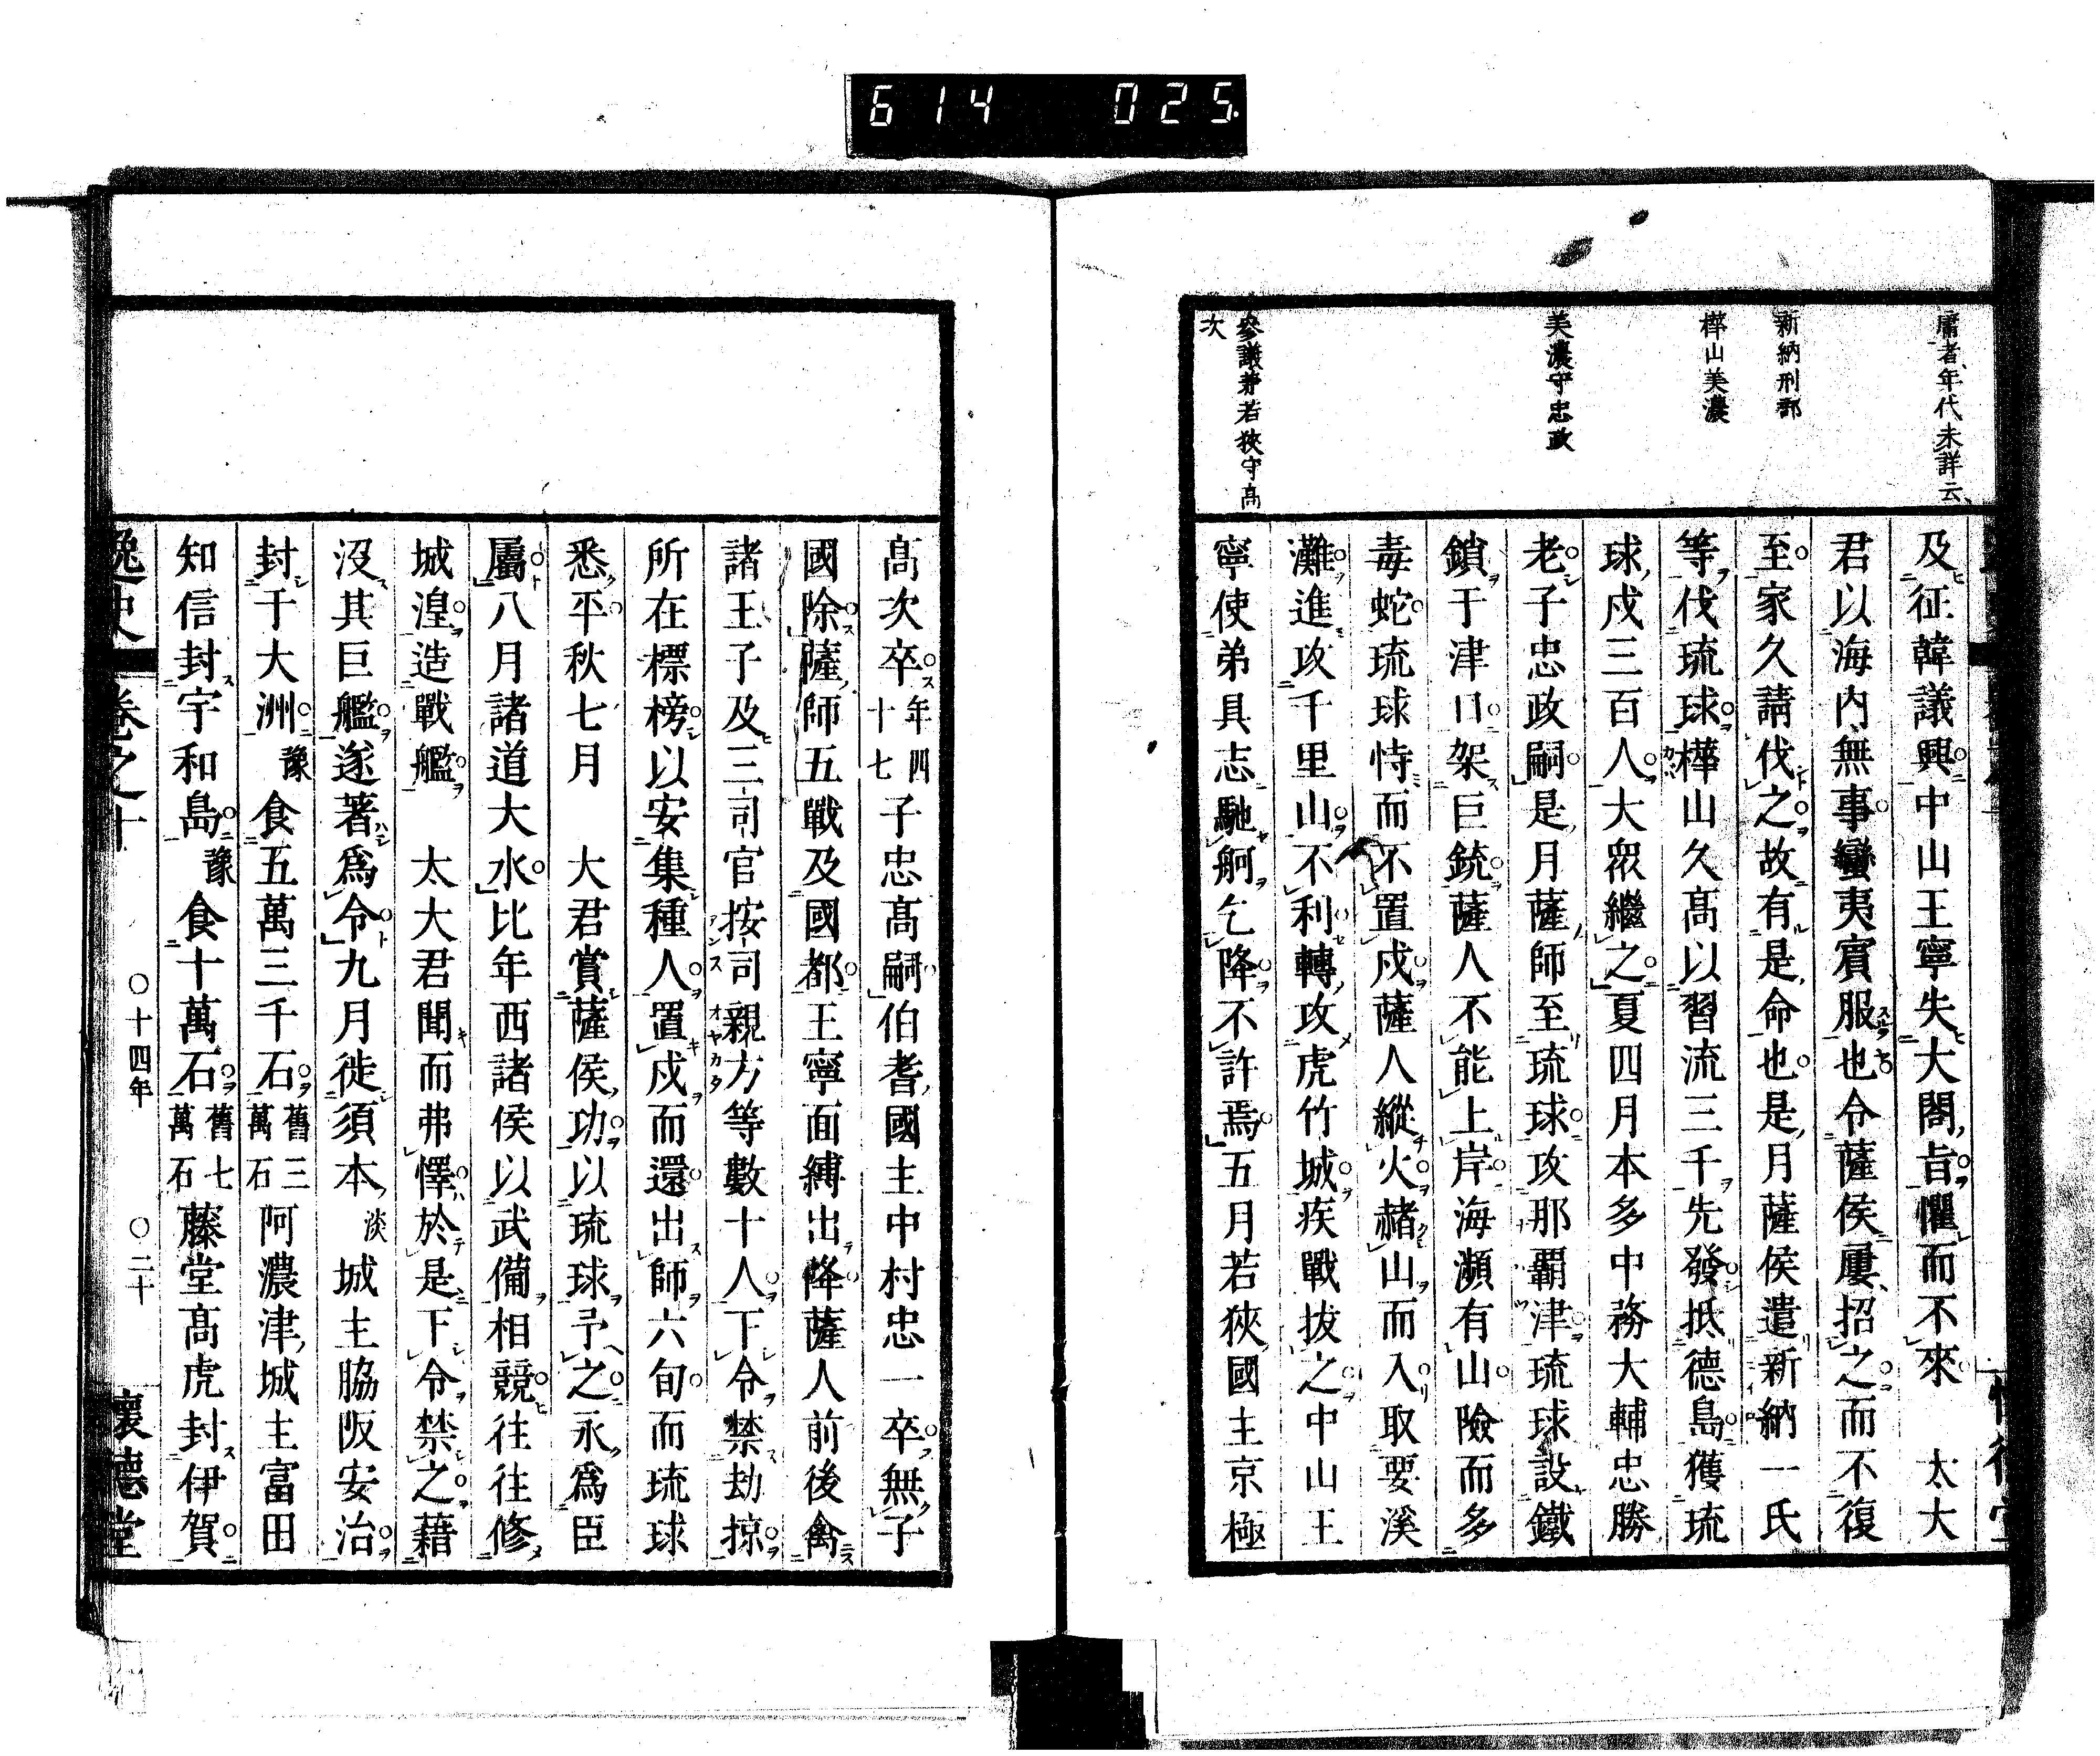 614 025
屬者年代未詳云
新納刑部
樺山美濃
美濃守忠政
參議兼若狹守高
次
及征韓議興中山王寧失大閤旨懼而不來 太大
君以海内無事蠻夷賓服也令薩侯屢招之而不復
至家久請伐之故有是命也是月薩侯遣新納一氏
等伐琉球樺山久高以習流三千先發抵德島獲琉
球戍三百人大眾繼之夏四月本多中務大輔忠勝
老子忠政嗣是月薩師至琉球攻那覇津琉球設鐵
鎖于津口架巨銃薩人不能上岸海瀕有山險而多
毒蛇琉球恃而不置戍薩人縱火赭山而入取要溪
灘進攻千里山不利轉攻虎竹城疾戰拔之中山王
寧使弟具志馳舸乞降不許焉五月若狹國主京極
高次卒年四十七子忠高嗣伯耆國主中村忠一卒無子
國除薩師五戰及國都王寧面縛出降薩人前後禽
諸王子及三司官按司親方等數十人下令禁劫掠
所在標榜以安集種人置戍而還出師六旬而琉球
悉平秋七月 大君賞薩侯功以琉球予之永爲臣
屬八月諸道大水比年西諸侯以武備相競往往修
城湟造戰艦 太大君聞而弗懌於是下令禁之藉
沒其巨艦遂著爲令九月徙須本淡城主脇阪安治
封于大洲豫食五萬三千石舊三萬石阿濃津城主富田
知信封宇和島豫食十萬石舊七萬石藤堂高虎封伊賀
逸史 卷之十 〇十四年 〇二十 懷德堂